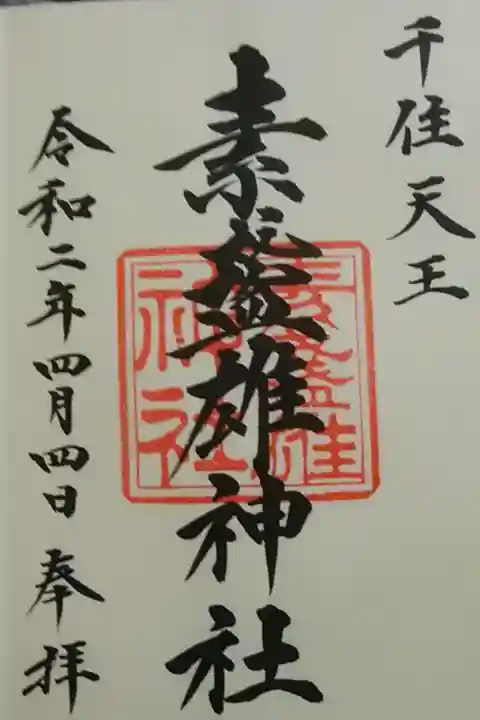 千住天王
素盞雄神社
令和二年四月四日 奉拝
素盞雄
神社